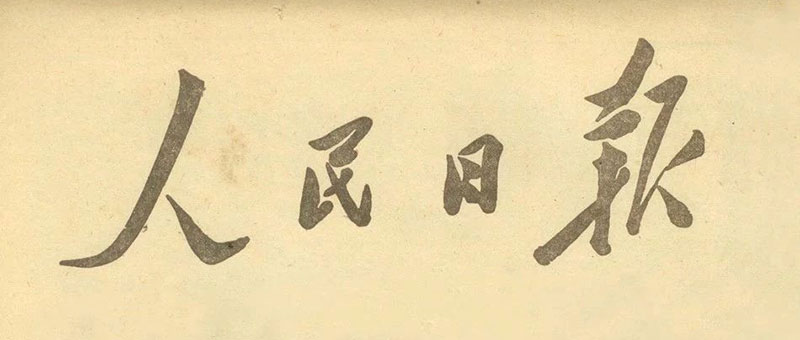 人民日報